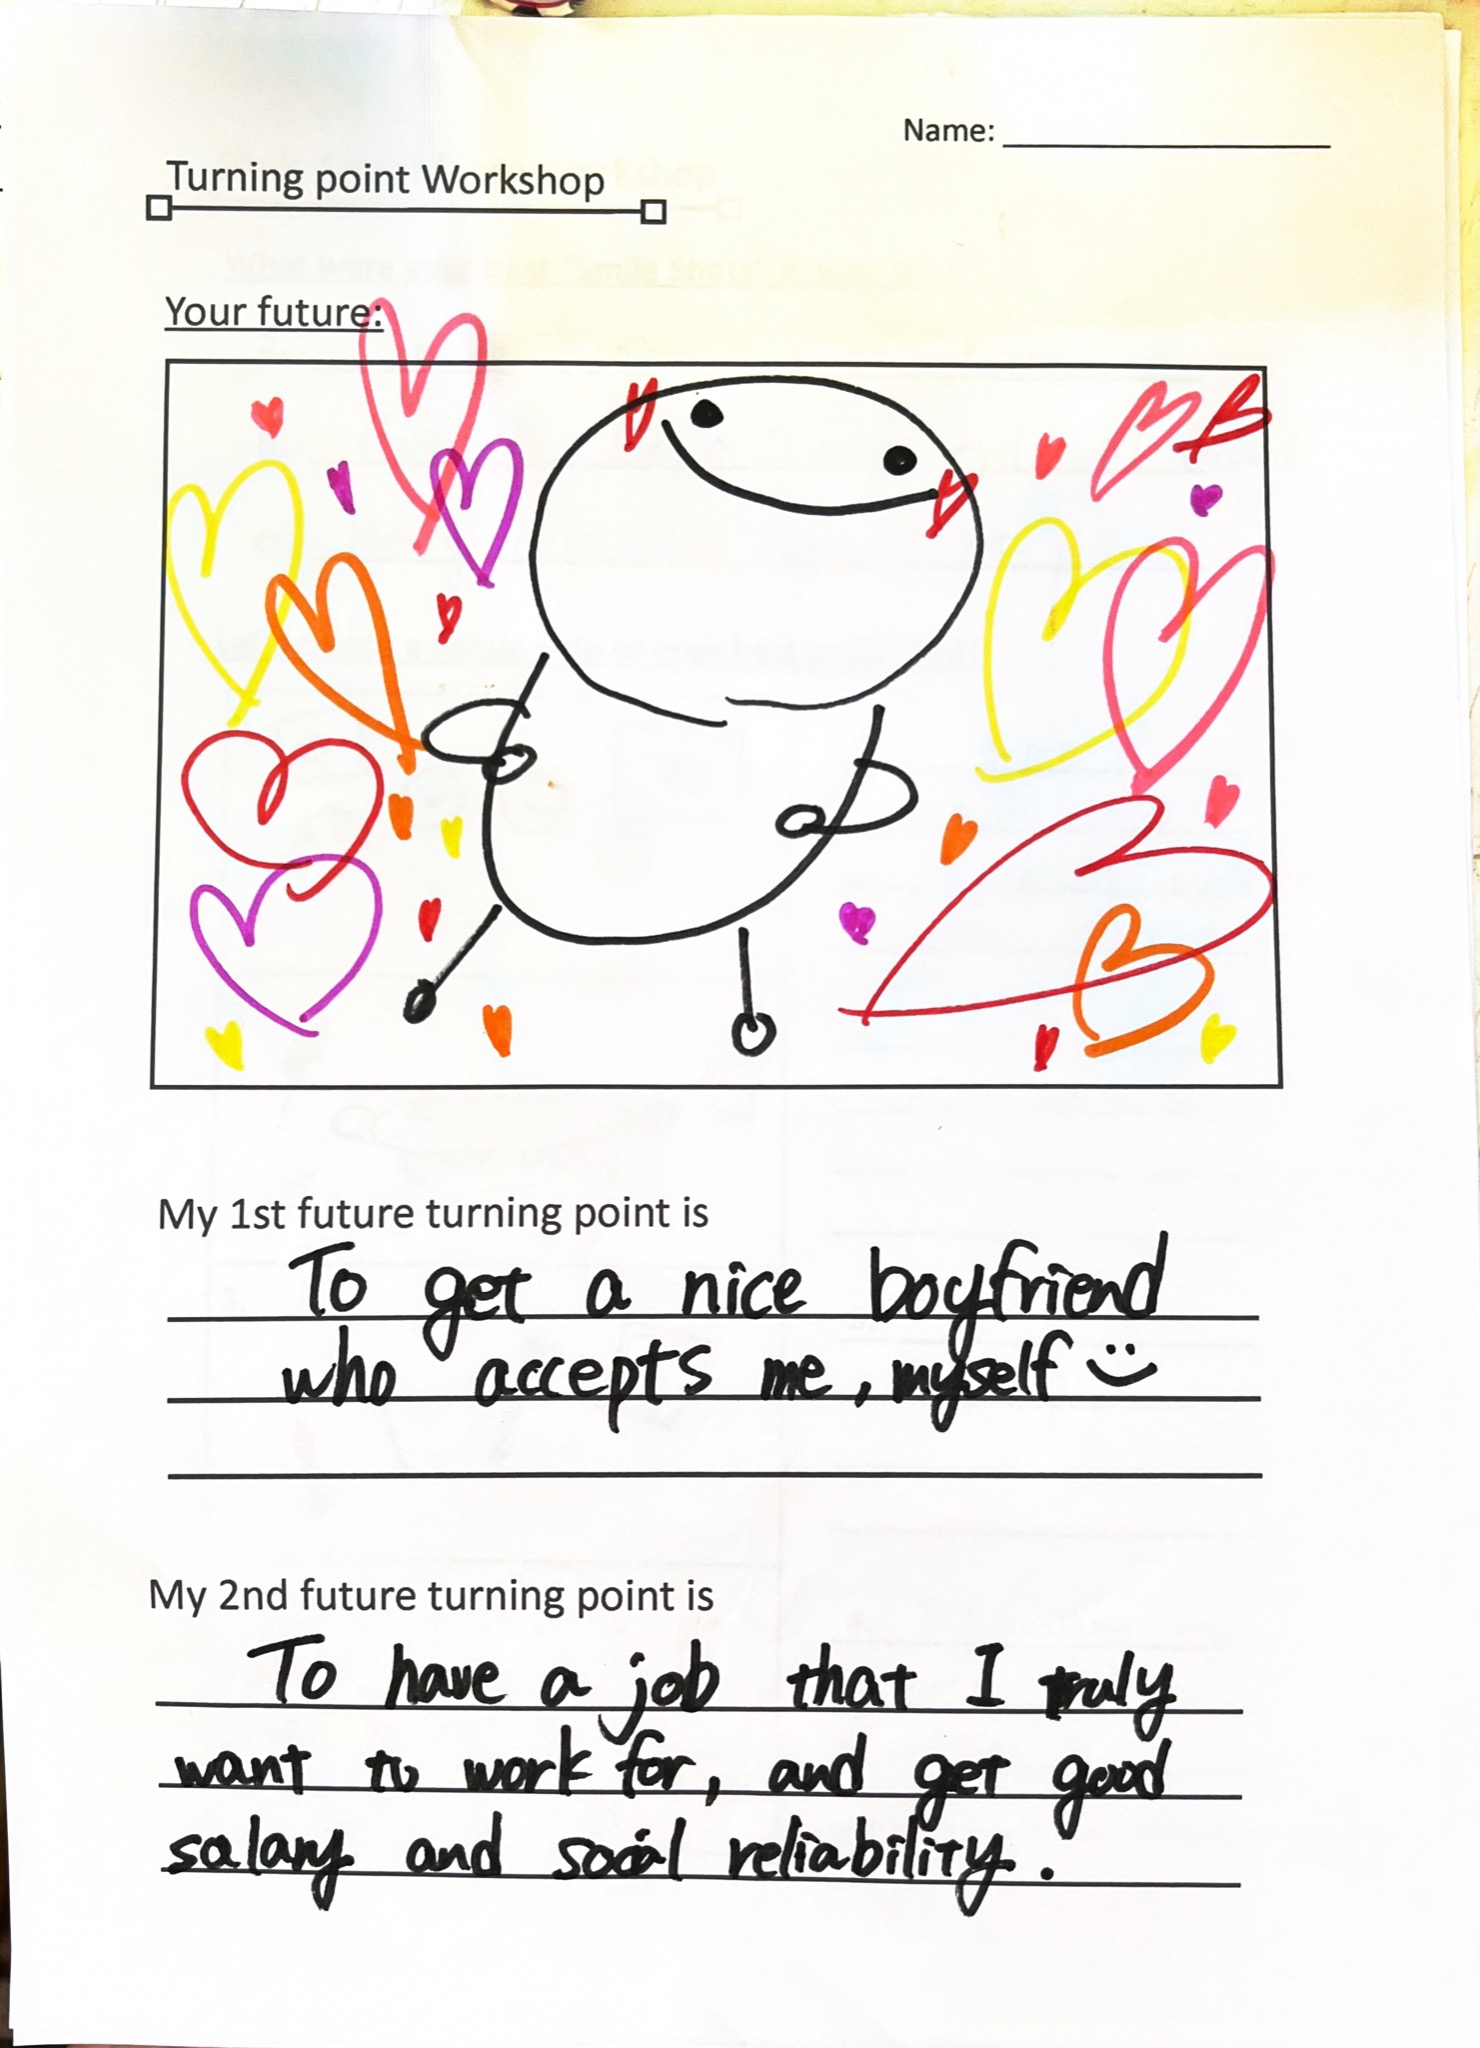 Name:
Turning point Workshop
Your future:
My 1st future turning point is
To get a nice boyfriend
who accepts me, myself
My 2nd future turning point is
To have a job that I truly
want to work for, and get good
salary and social reliability.